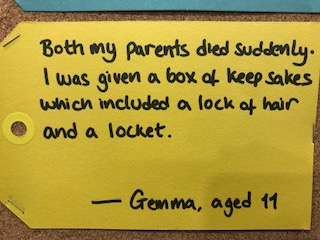 Both my parents died suddenly.
I was given a box of keep sakes
which included a lock of hair
and a locket.
— Gemma, aged 11